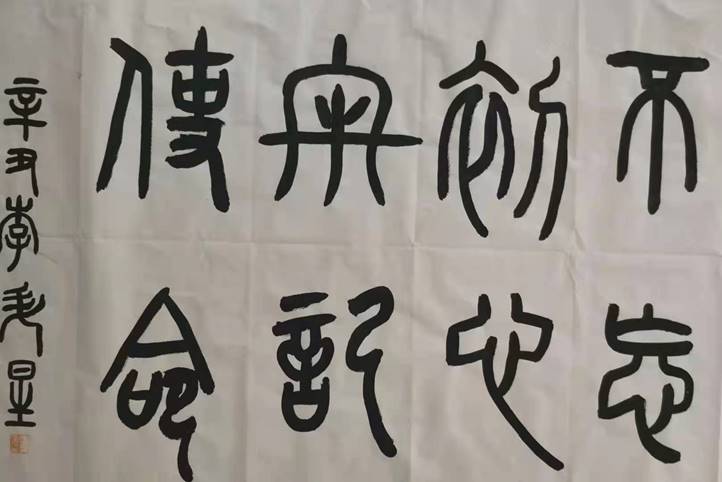 不忘
初心
牢記
使命
辛丑李星